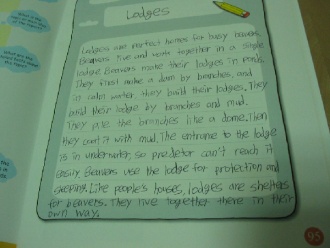 Lodges
Lodges are perfect homes for busy beavers.
Beavers live and work together in a single
lodge. Beavers make their lodges in ponds.
They first make a dam by branches, and
in calm water, they build their lodges. They
build their lodge by branches and mud.
They pile the branches like a dome. Then
they coat it with mud. The entrance to the lodge
is in underwater, so predetor can't reach it
easily. Beavers use the lodge for protection and
sleeping. Like people's houses, lodges are shelters
for beavers. They live together there in their
own way.
95